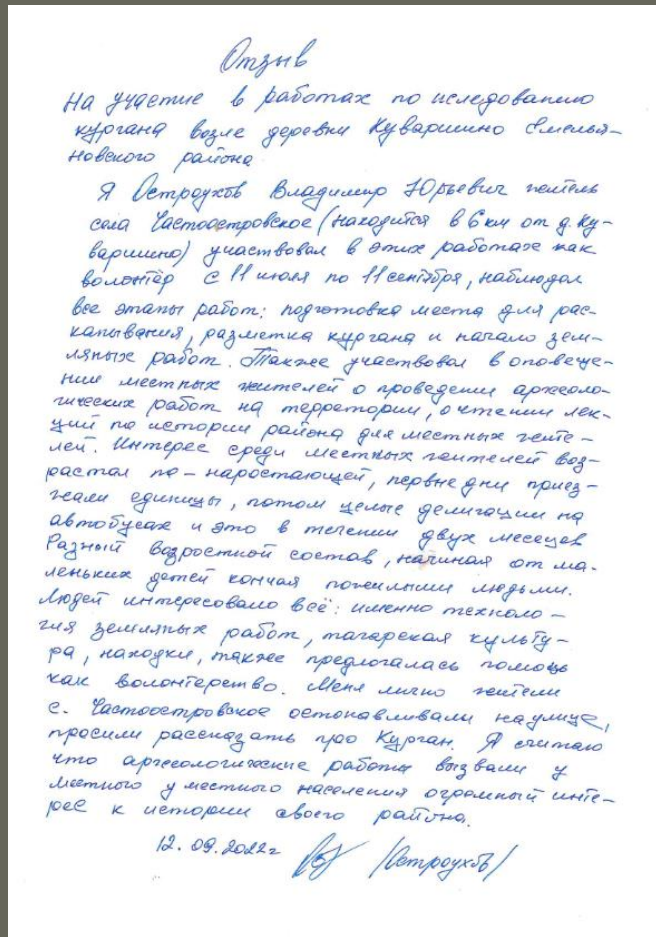 Отзыв
На участие в работах по иследованию
кургана возле деревни Куваршино Емелья-
новского района
Я Остроухов Владимир Юрьевич житель
села Частоостровское (находится в 6 км от д. Ку-
варшино) участвовал в этих работах как
волонтёр с 11 июля по 11 сентября, наблюдал
все этапы работ: подготовка места для рас-
капывания, разметка кургана и начало зем-
ляных работ. Также участвовал в оповеще-
нии местных жителей о проведении археоло-
гических работ на терратории, о чтении лек-
ций по истории района для местных жите-
лей. Интерес среди местных жителей воз-
растал по-наростающей, первые дни приез-
жали единицы, потом целые делигации на
автобусах и это в течении двух месецев
Разный возростной состав, начиная от ма-
леньких детей кончая пожилыми людьми.
Людей интересовало всё: именно техноло-
гия земляных работ, тагарская культу-
ра, находки, также предлогалась помощь
как волонтерство. Меня лично жители
с. Частоостровское останавливали на улице,
просили рассказать про Курган. Я считаю
что археологические работы вызвали у
местного у местного населения огромный инте-
рес к истории своего района.
12.09.2022г /Остроухов/